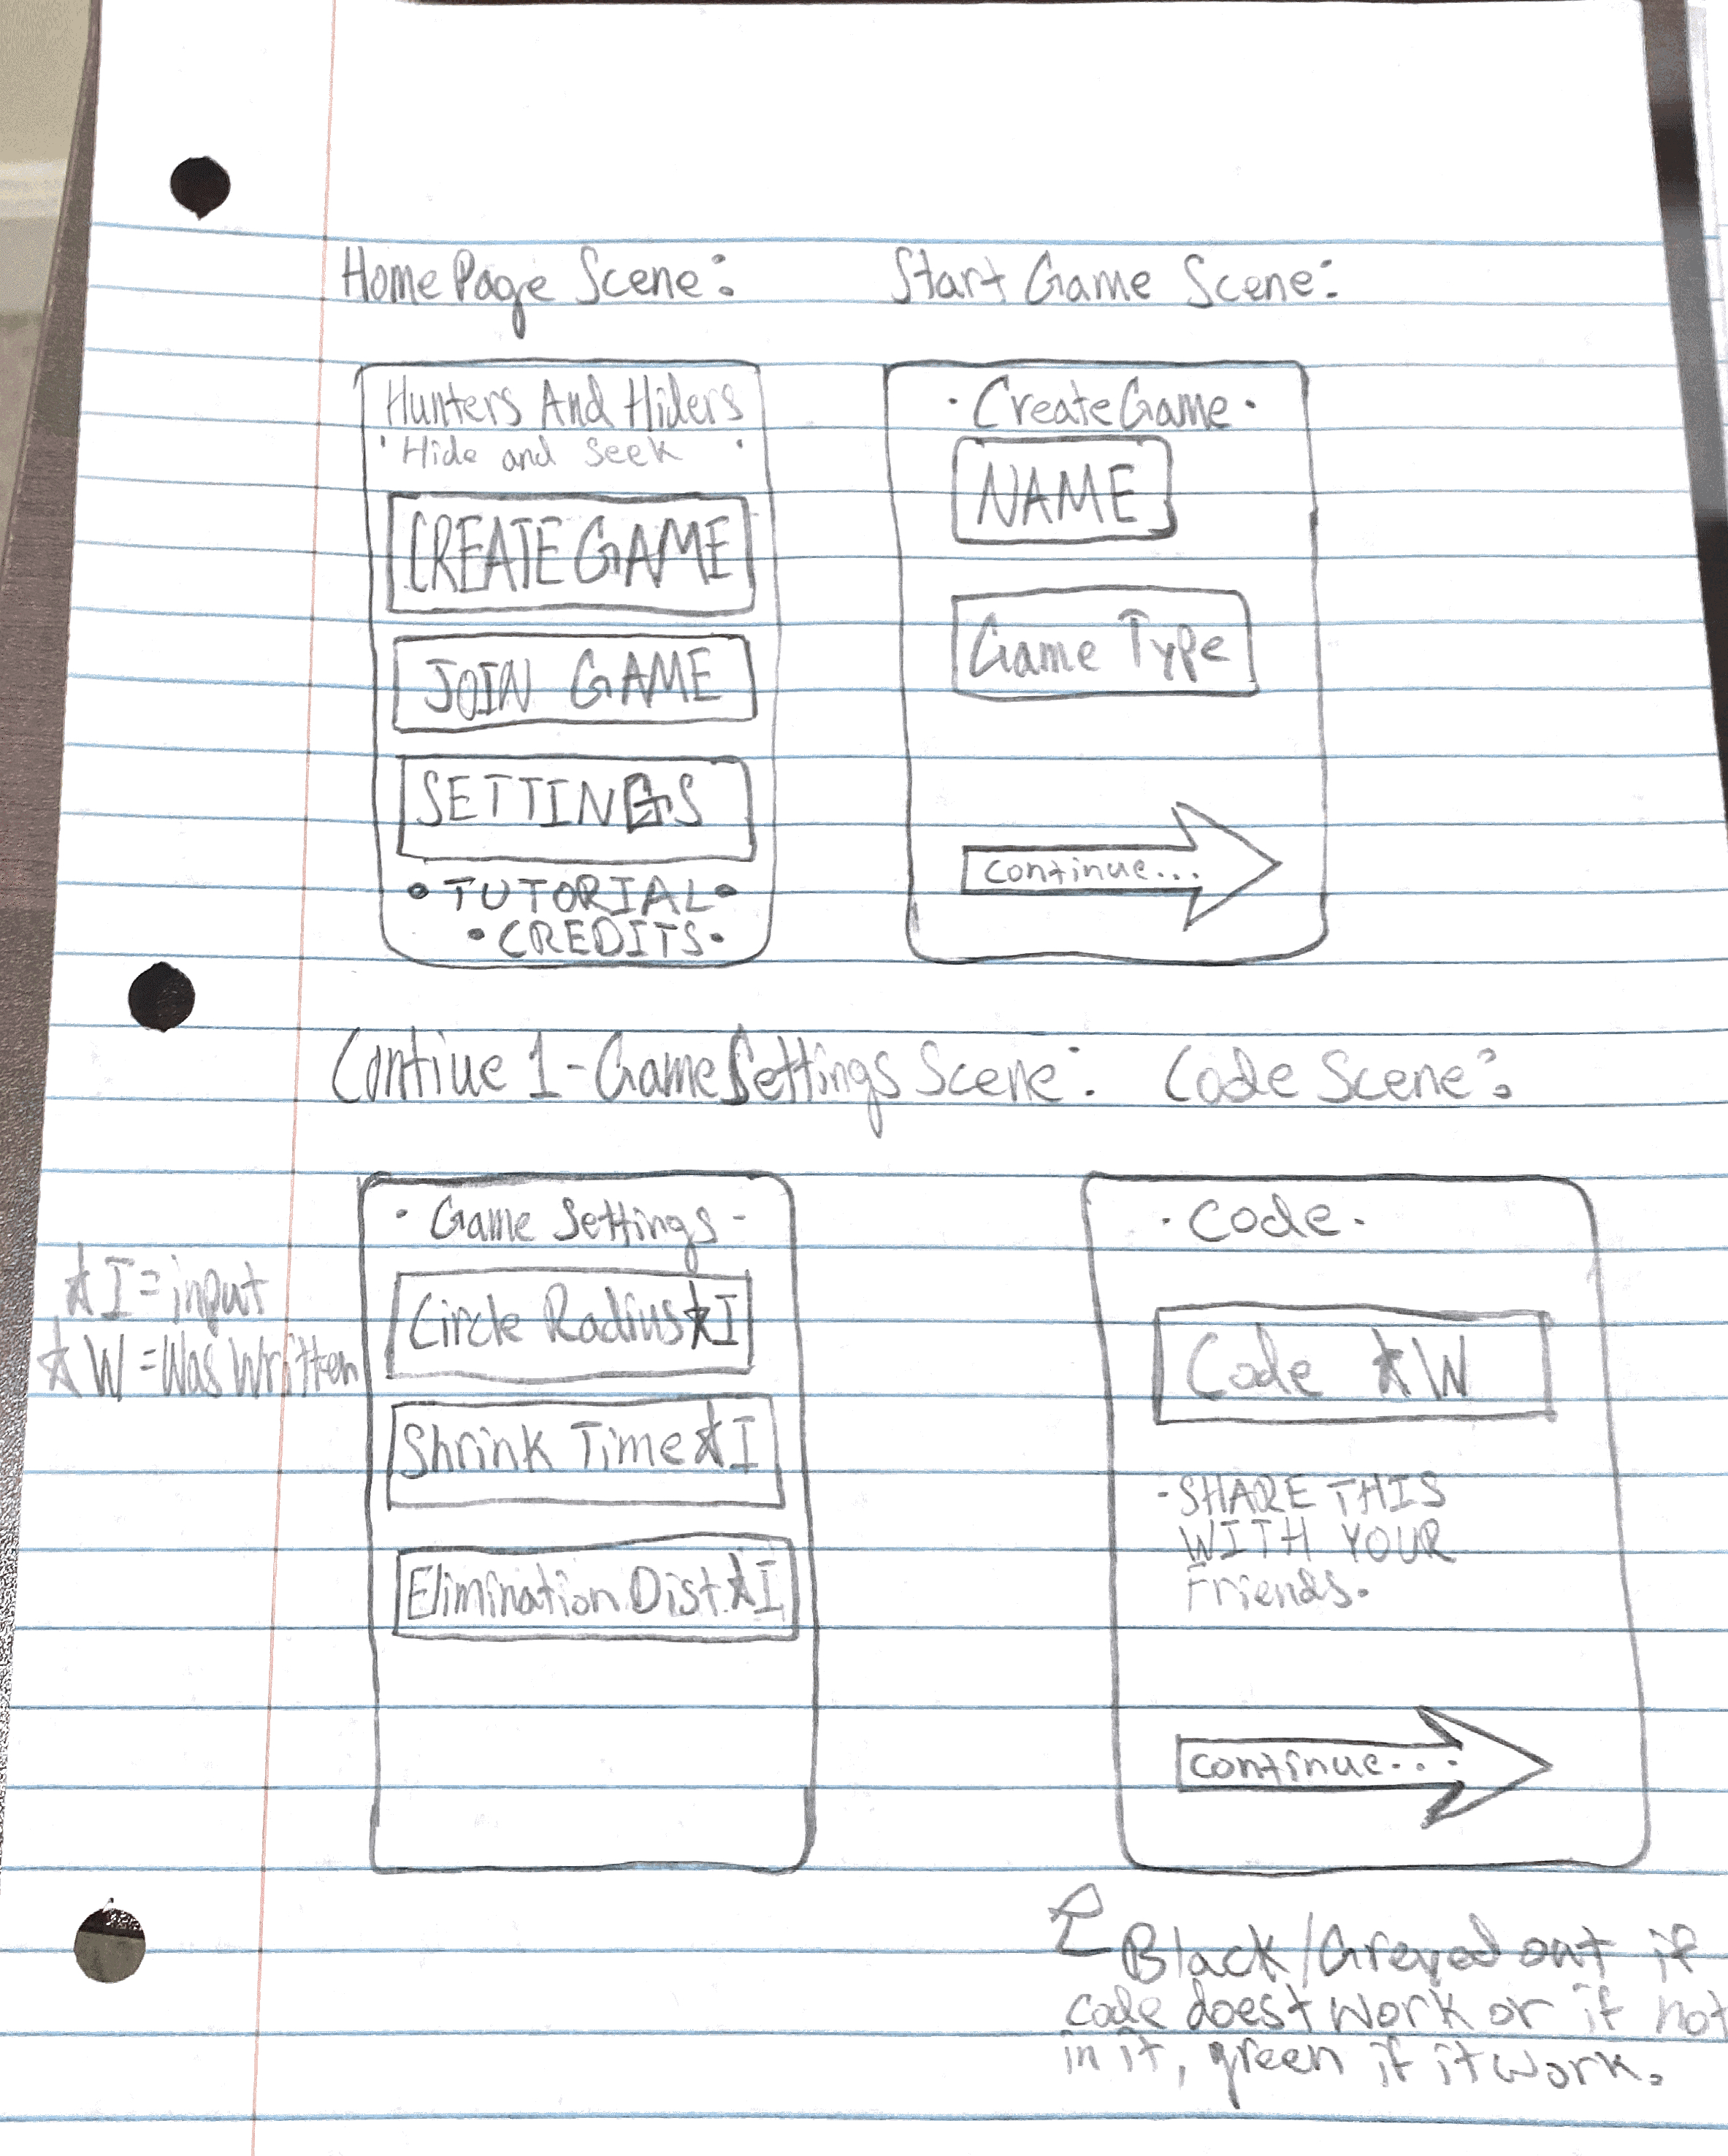 Home Page Scene:
Start Game Scene:
Hunters And Hiders
· Hide and Seek ·
CREATE GAME
JOIN GAME
SETTINGS
• TUTORIAL •
• CREDITS •
· Create Game ·
NAME
Game Type
continue...
Contiue 1 - Game Settings Scene:
Code Scene:
★ I = input
★ W = Was Written
· Game Settings -
Circle Radius ★ I
Shrink Time ★ I
Elimination Dist ★ I
· Code ·
Code ★ W
- SHARE THIS
WITH YOUR
Friends.
continue...
Black/Greyed out if
code doest work or if not
in it, green if it work.